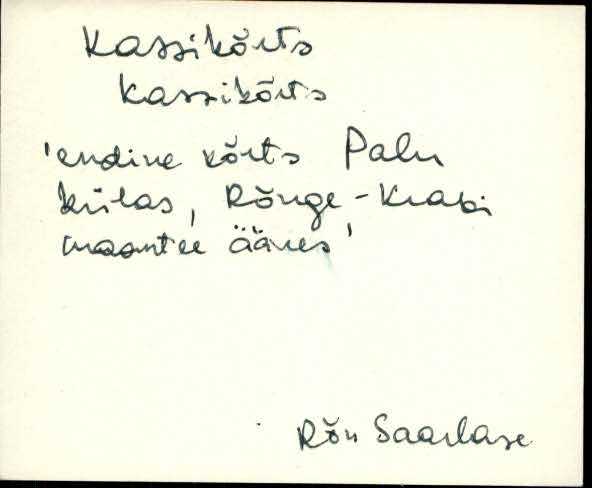 Kassikõrts
Kassikõrts
'endine kõrts Palu
külas, Rõuge-Krabi
maantee ääres'
Rõu Saarlase